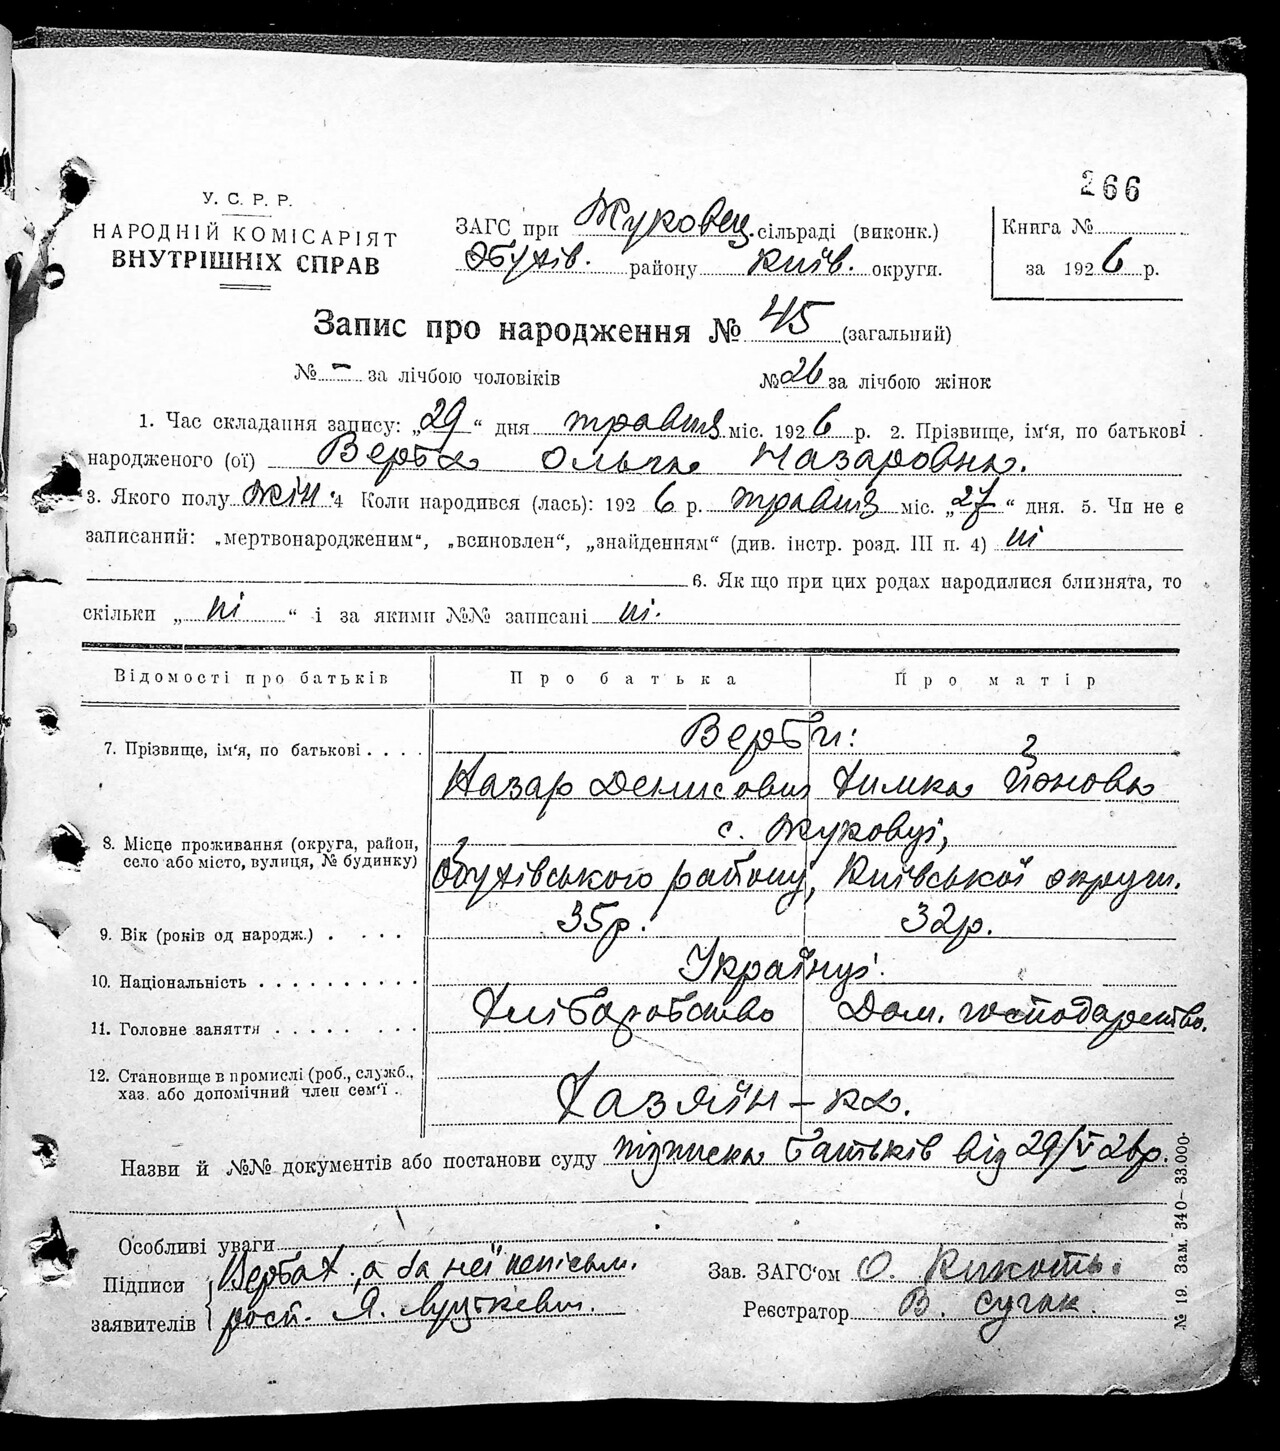 266
У. С. Р. Р.
НАРОДНІЙ КОМІСАРІЯТ
ВНУТРІШНІХ СПРАВ
ЗАГС при Жуковец. сільраді (виконк.)
Обухів. району Київ. округи.
Книга №
за 1926 р.
Запис про народження № 45 (загальний)
№ – за лічбою чоловіків № 26 за лічбою жінок
1. Час складання запису: „29“ дня травня міс. 1926 р. 2. Прізвище, ім'я, по батькові
народженого (ої) Верба Ольга Назаровна.
3. Якого полу жін. 4 Коли народився (лась): 1926 р. травня міс. „27“ дня. 5. Чи не є
записаний: „мертвонародженим“, „всиновлен“, „знайденням“ (див. інстр. розд. III п. 4) ні
6. Як що при цих родах народилися близнята, то
скільки „ні“ і за якими №№ записані ні.
Відомості про батьків Про батька Про матір
7. Прізвище, ім'я, по батькові . . . . Верби:
Назар Денисович Химка Йоновна
8. Місце проживання (округа, район, село або місто, вулиця, № будинку) с. Жуковці,
Обухівського району, Київської округи.
9. Вік (років од народж.) . . . . 35р. 32р.
10. Національність . . . . . . . . . . Українці.
11. Головне заняття . . . . . . . . . Хліборобство Дом. господарство.
12. Становище в промислі (роб., служб., хаз. або допомічний член сем'ї . . Хазяїн – ка.
Назви й №№ документів або постанови суду підписка батьків від 29/V 26р.
Особливі уваги
Підписи заявителів Верба Х., а за неї неписьм.
росп. Я.
Зав. ЗАГС'ом О.
Реєстратор В. Сугак.
№ 19. Зам. 340– 33.000-